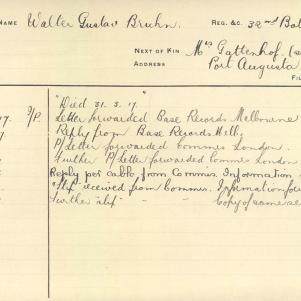 NAME Walter Gustav Bruhn. REG. &C. 32nd Bat
NEXT OF KIN Mrs Gattenhof. (
ADDRESS Port Augusta
FI
"Died 31.3.17."
17. Letter forwarded Base Records Melbourne
Reply from Base Records Melb.
P/ Letter forwarded Commrs London.
Further P/ Letter forwarded Commrs London
Reply per cable from Commrs. Information
"Slip" received from Commrs. Information
Further "slip" - - Copy of same se